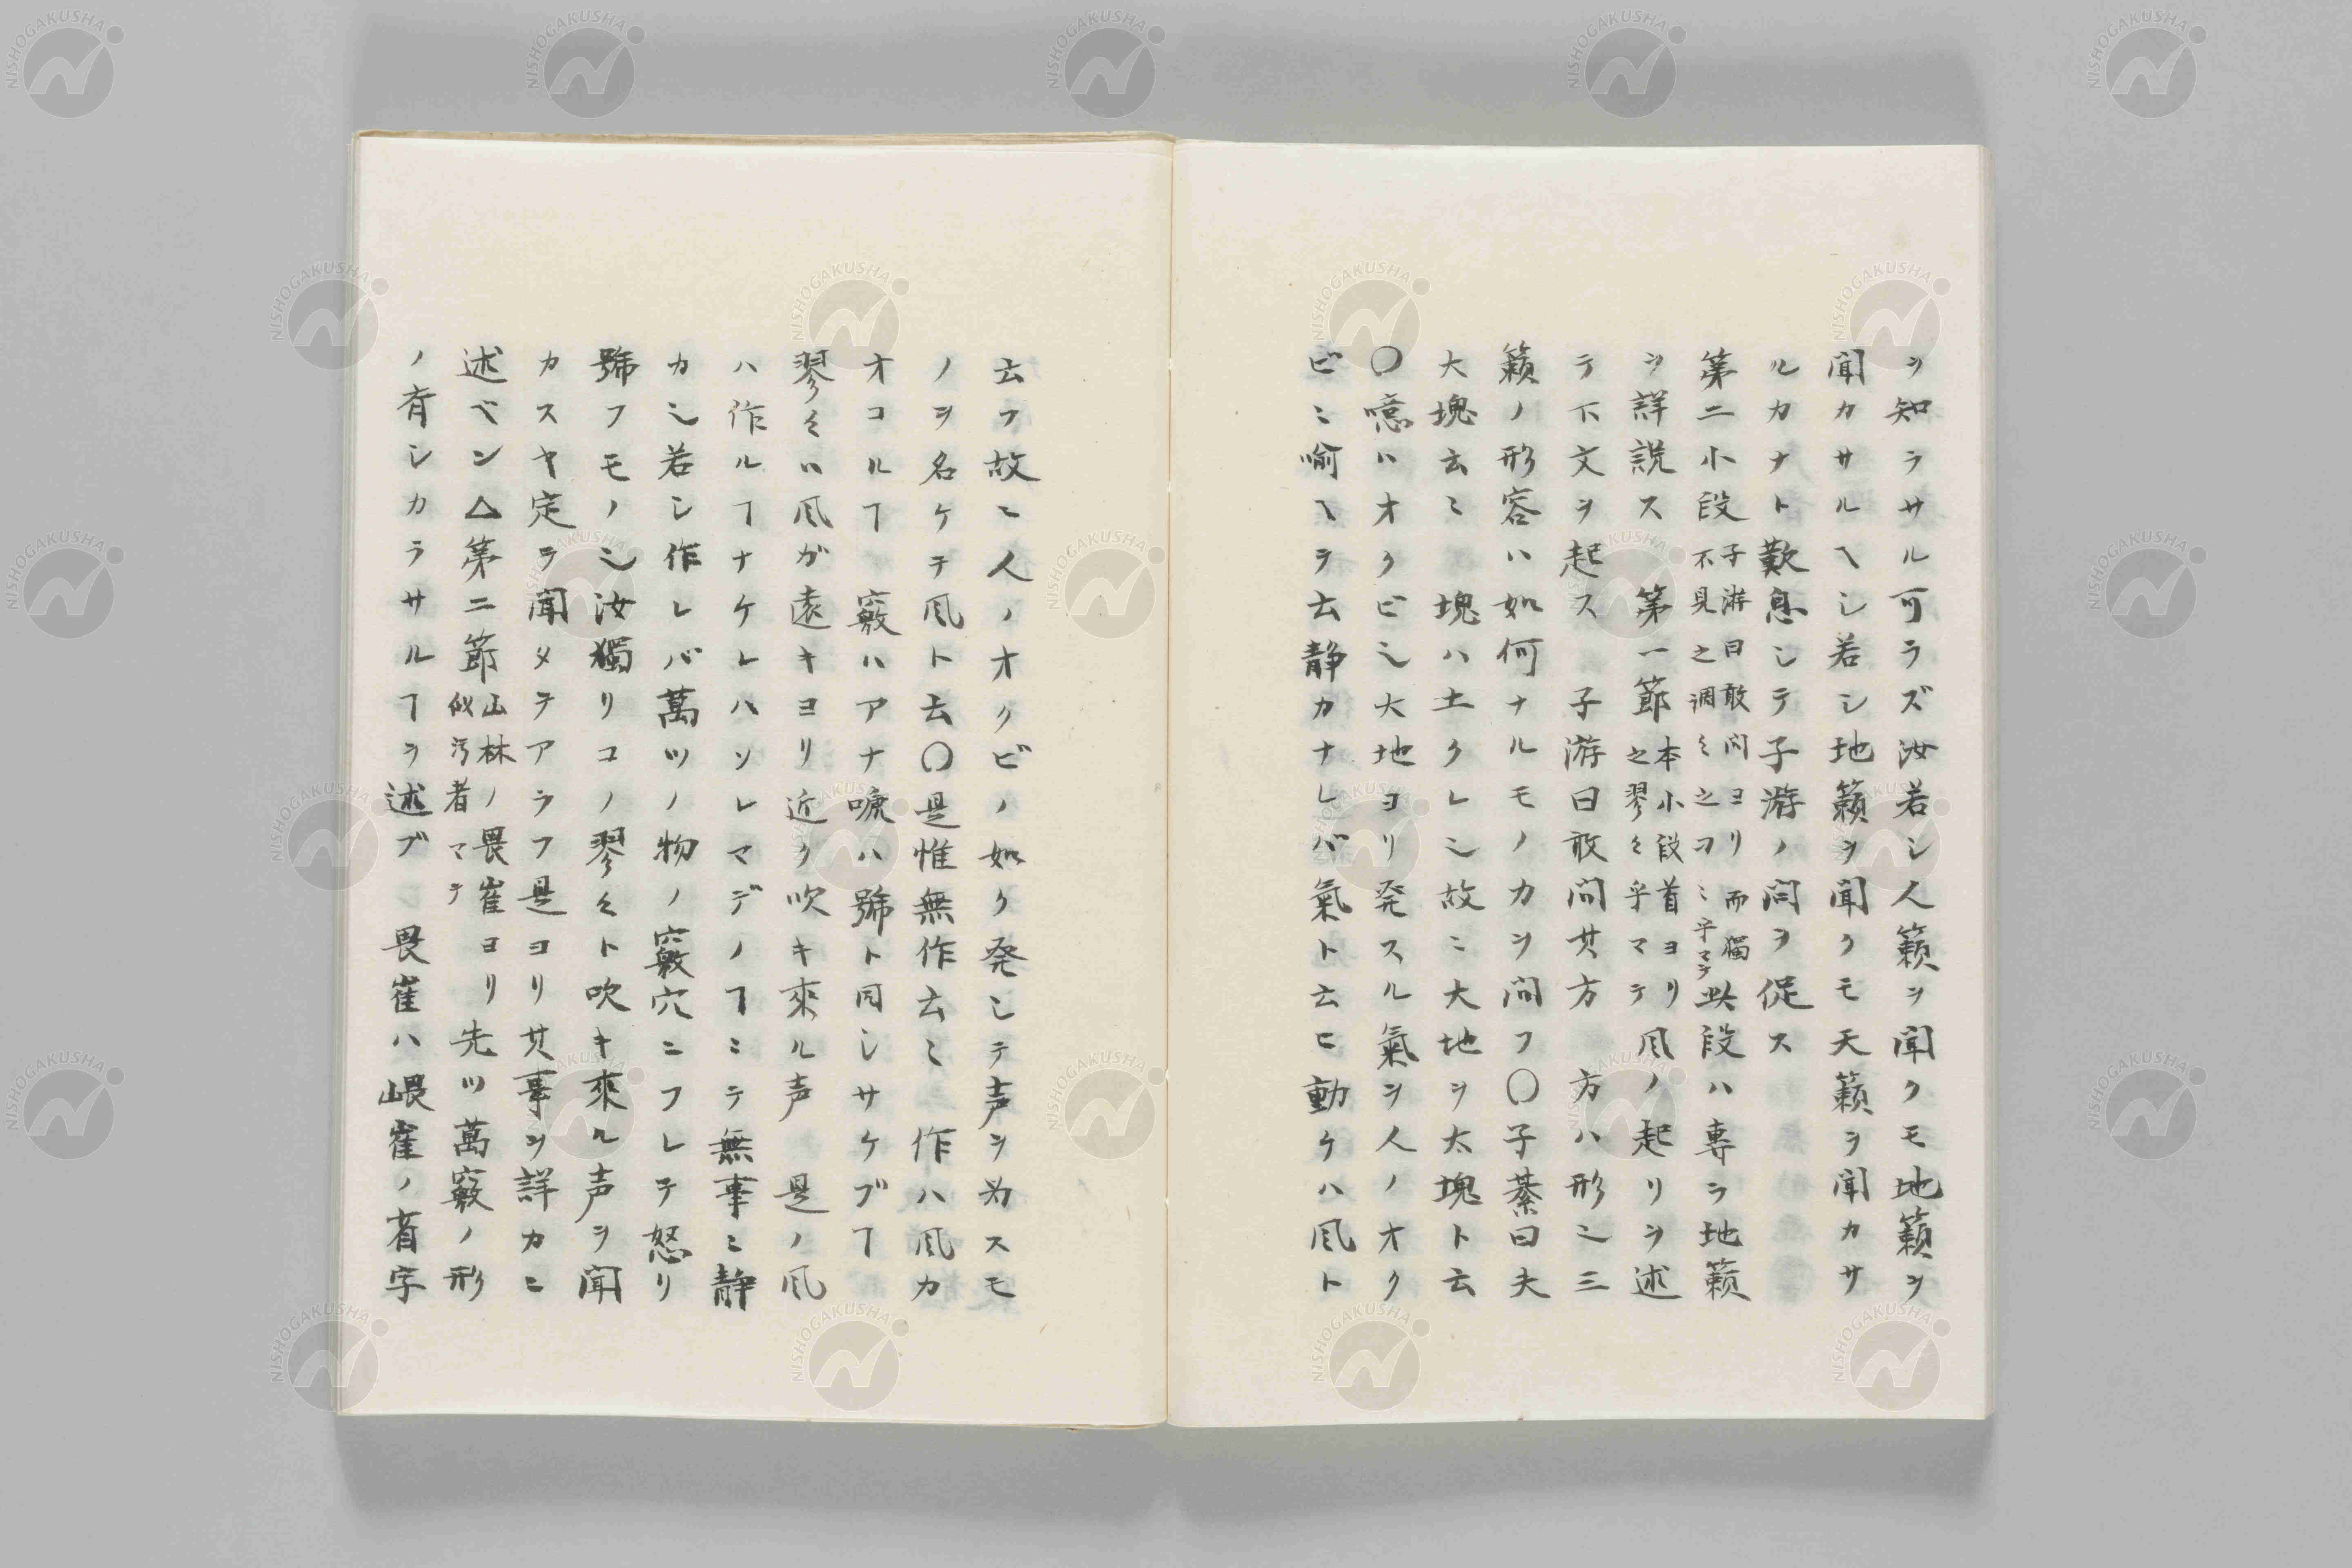 ヲ知ラサル可ラズ汝若シ人籟ヲ聞クモ地籟ヲ
聞カサルヘシ若シ地籟ヲ聞クモ天籟ヲ聞カサ
ルカナト歎息シテ子游ノ問ヲ促ス
第二小段子游曰敢問ヨリ而獨不見之調〻之刁〻乎マテ此段ハ專ラ地籟
ヲ詳説ス 第一節本小段首ヨリ之翏〻乎マテ風ノ起リヲ述
テ下文ヲ起ス 子游曰敢問其方 方ハ形也三
籟ノ形容ハ如何ナルモノカヲ問フ〇子綦曰夫
大塊云〻 塊ハ土クレ也故ニ大地ヲ大塊ト云
〇噫ハオクビ也大地ヨリ発スル氣ヲ人ノオク
ビニ喻ヘヲ云静カナレバ氣ト云ヒ動ケハ風ト
云フ故ニ人ノオクビノ如ク発シテ声ヲ為スモ
ノヲ名ケテ風ト云〇是惟無作云〻 作ハ風カ
オコルヿ 竅ハアナ唬ハ號ト同シサケブヿ
翏〻ハ風ガ遠キヨリ近ク吹キ來ル声 是ノ風
ハ作ルヿナケレハソレマデノヿニテ無事ニ静
カ也若シ作レバ萬ツノ物ノ竅穴ニフレテ怒リ
號フモノ也汝獨リコノ翏〻ト吹キ來ル声ヲ聞
カスヤ定ラ聞タテアラフ是ヨリ其事ヲ詳カニ
述ベン△第二節山林ノ畏崔ヨリ似汚者マテ先ツ萬竅ノ形
ノ斉シカラサルヿヲ述ブ 畏崔ハ嵔崔ノ省字